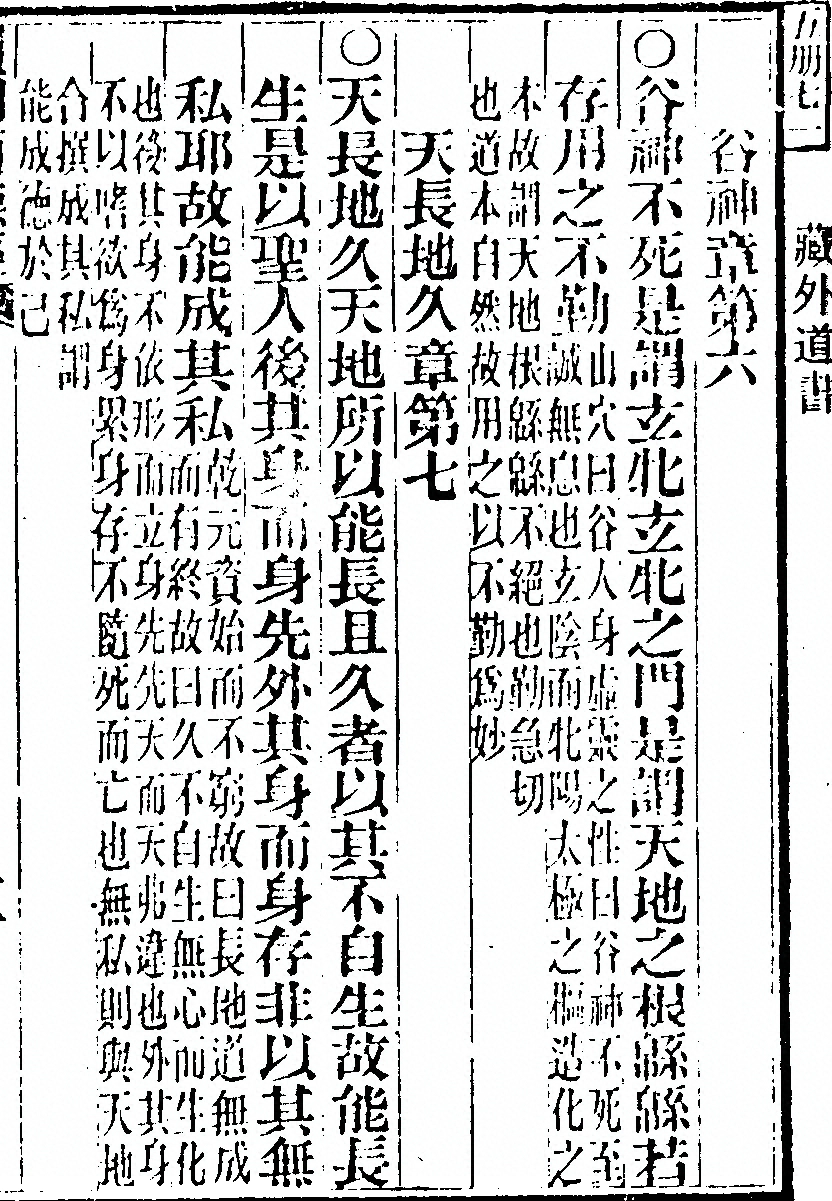 藏外道書
谷神章第六
○谷神不死是謂玄牝玄牝之門是謂天地之根綿綿若
存用之不勤山穴曰谷人身虛靈之性曰谷神不死至
誠無息也玄陰而牝陽太極之樞造化之
本故謂天地根綿綿不絕也勤急切
也道本自然故用之以不勤爲妙
天長地久章第七
○天長地久天地所以能長且久者以其不自生故能長
生是以聖人後其身而身先外其身而身存非以其無
私耶故能成其私乾元資始而不窮故曰長地道無成
而有終故曰久不自生無心而生化
也後其身不依形而立身先先天而天弗違也外其身
不以嗜欲爲身累身存不隨死而亡也無私則與天地
合撰成其私謂
能成德於己